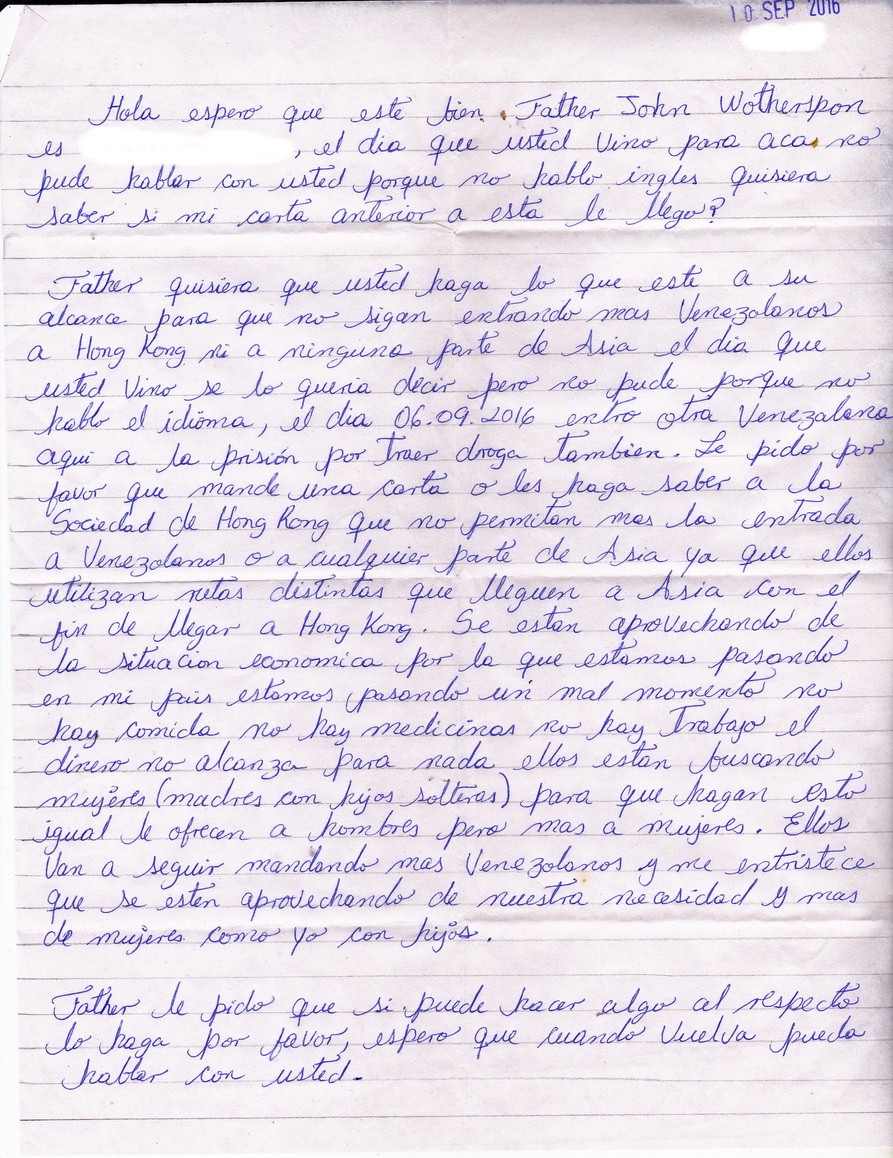 10 SEP 2016
Hola espero que este bien. Father John Wotherspon
es , el dia que usted Vino para aca no
pude hablar con usted porque no hablo ingles quisiera
saber si mi carta anterior a esta le llego?
Father quisiera que usted haga lo que este a su
alcance para que no sigan entrando mas Venezolanos
a Hong Kong ni a ninguna parte de Asia el dia que
usted Vino se lo queria decir pero no pude porque no
hablo el idioma, el dia 06.09.2016 entro otra Venezolana
aqui a la prisión por traer droga tambien. Le pido por
favor que mande una carta o les haga saber a la
Sociedad de Hong Kong que no permitan mas la entrada
a Venezolanos o a cualquier parte de Asia ya que ellos
utilizan rutas distintas que lleguen a Asia con el
fin de llegar a Hong Kong. Se estan aprovechando de
la situacion economica por la que estamos pasando
en mi pais estamos pasando un mal momento no
hay comida no hay medicinas no hay Trabajo el
dinero no alcanza para nada ellos estan buscando
mujeres (madres con hijos solteras) para que hagan esto
igual le ofrecen a hombres pero mas a mujeres. Ellos
Van a seguir mandando mas Venezolanos y me entristece
que se esten aprovechando de nuestra necesidad y mas
de mujeres como yo con hijos.
Father le pido que si puede hacer algo al respecto
lo haga por favor, espero que cuando Vuelva pueda
hablar con usted.